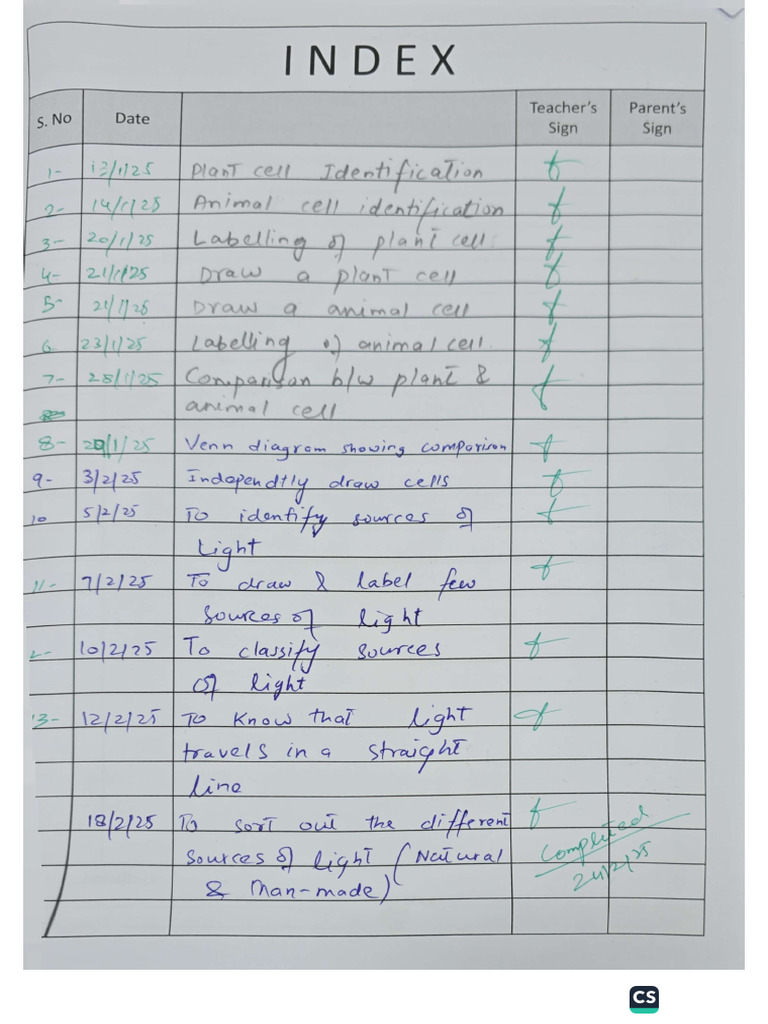 INDEX
S. No Date Teacher's Sign Parent's Sign
1- 13/1/25 Plant cell Identification
2- 14/1/25 Animal cell identification
3- 20/1/25 Labelling of plant cell.
4- 21/1/25 Draw a plant cell
5- 21/1/25 Draw a animal cell
6 23/1/25 Labelling of animal cell.
7- 28/1/25 Comparison b/w plant &
animal cell
8- 29/1/25 Venn diagram showing comparison
9- 3/2/25 Independtly draw cells
10 5/2/25 To identify sources of
Light
11- 7/2/25 To draw & label few
Sources of light
2- 10/2/25 To classify sources
of light
13- 12/2/25 To know that light
travels in a straight
line
18/2/25 To sort out the different
Sources of light (Natural
& Man-made)
Completed
24/2/25
CS